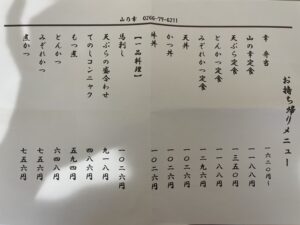 山の幸 0266-79-6211
お持ち帰りメニュー
幸 弁当 一六二〇円～
山の幸定食 一一八八円
天ぷら定食 一三五〇円
とんかつ定食 一一八八円
みぞれかつ定食 一二九六円
天丼 一〇二六円
かつ丼 一〇二六円
牛丼 一〇二六円
【一品料理】
馬刺し 一〇二六円
天ぷらの盛合わせ 九一八円
てのしコンニャク 四八六円
もつ煮 五九四円
とんかつ 六四八円
みぞれかつ 七五六円
煮かつ 七五六円